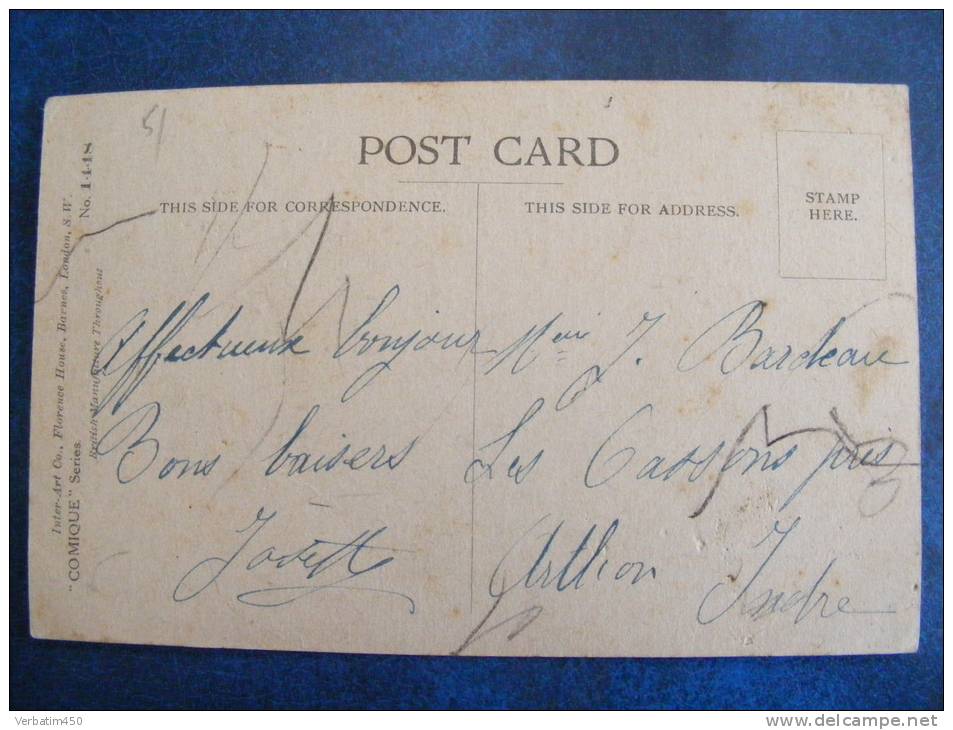 51
POST CARD
THIS SIDE FOR CORRESPONDENCE.
THIS SIDE FOR ADDRESS.
STAMP
HERE.
Inter-Art Co., Florence House, Barnes, London, S.W.
"COMIQUE" Series.
No. 1448
British Manufacture Throughout
Affectueux bonjour
Bons baisers
J. Bardeau
Les Cassons près
Indre
Verbatim450
www.delcampe.net